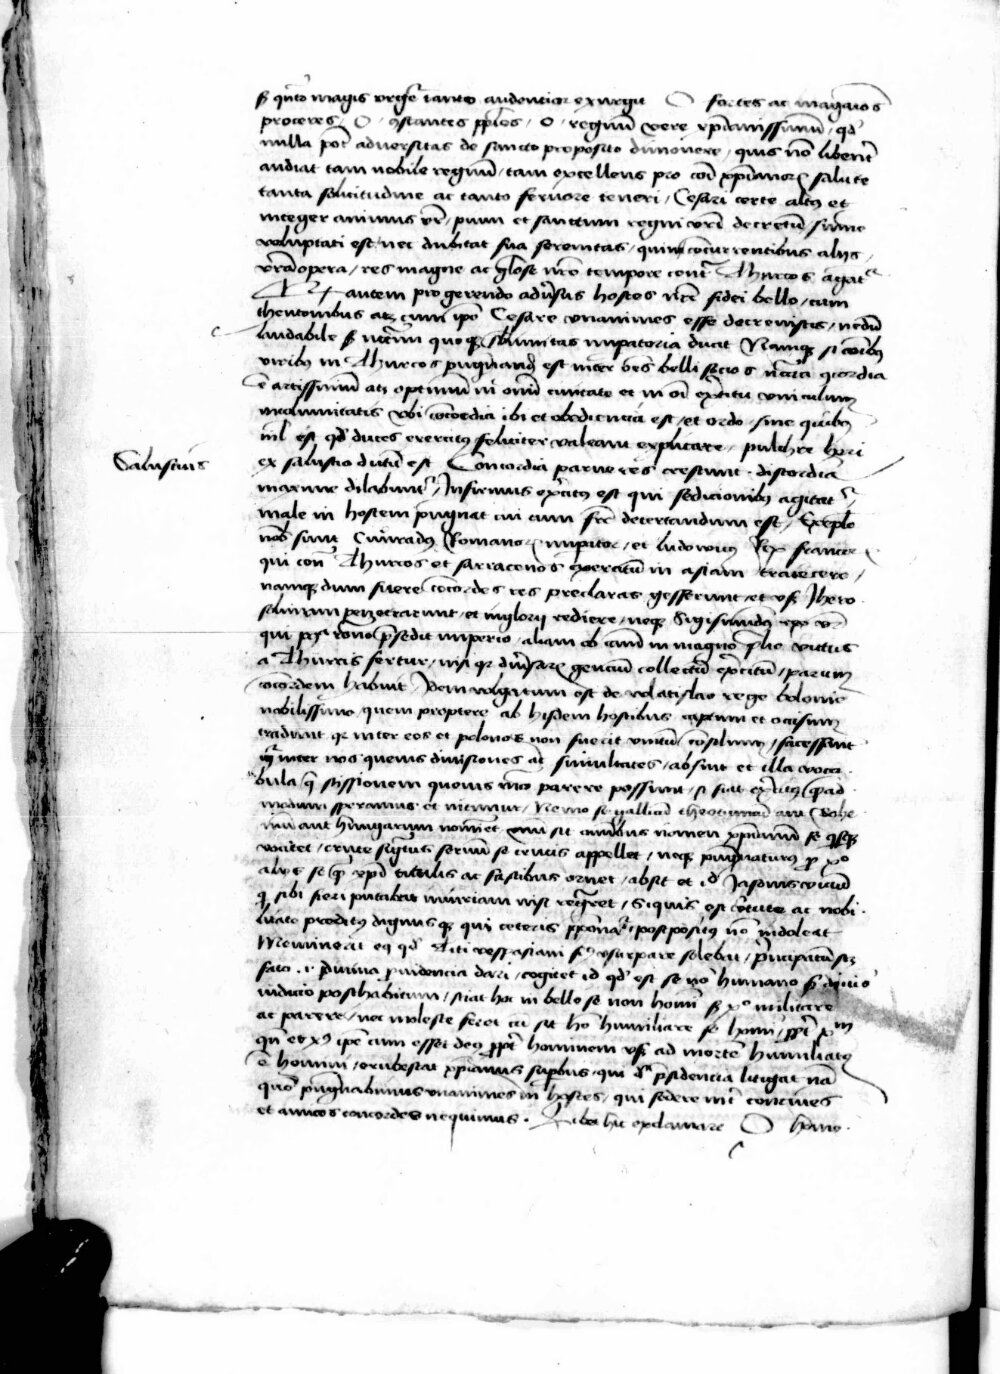 sed quanto magis urgetur tanto audentior exurgit O fortes ac magnanimos
proceres / O constantes populos / O regnum vere christianissimum / quod
nulla potest adversitas de sancto proposito dimovere / quis non libenter
audiat tam nobile regnum / tam excellens pro communi christianorum salute
tanta solicitudine ac tanto fervore teneri / Cesari certe altus et
integer animus vester / pium et sanctum regni vestri decretum summe
voluptati est / nec dubitat sua serenitas / quin concurrentibus aliis /
vestra opera / res magne ac gloriose nostro tempore contra Thurcos agantur
autem pro gerendo adversus hostes nostre fidei bello / cum
theutonibus atque cum ipso Cesare unanimes esse decrevistis / nedum
laudabile sed necessarium quoque sublimitas imperatoria ducit Namque si omnibus
viribus in Thurcos pugnandum est inter omnes belli socios necessaria concordia
est artissimum atque optimum in omni civitate et in omni exercitu vinculum
incolumitatis ubi concordia ibi et obediencia est / et ordo / sine quibus
nihil est quod duces exercitus feliciter valeant explicare / pulchre heri
Salustius
ex salustio dictum est Concordia parve res crescunt . discordia
maxime dilabuntur / Infirmus exercitus est qui sedicionibus agitatur
male in hostem pugnat cui cum fratre decertandum est / Exemplo
nobis sunt Cunradus Romanorum imperator / et ludovicus Rex francorum
qui contra Thurcos et sarracenos exercitum in asiam traiecere /
namque dum fuere concordes res preclaras gesserunt / et usque Ihero
solimam penetrarunt / et inglorii rediere / neque Sigismundus rex vester
qui post romano presedit imperio / aliam ob causam in magno prelio victus
a Thurcis fertur / nisi quod diversarum gencium collectum exercitum / parum
concordem habuit / Idem vulgatum est de volatislao rege polonie
nobilissimo / quem propterea ab hisdem hostibus captum et occisum
tradunt quod inter eos et polonos non fuerit unum consilium / facessant
igitur inter nos quevis divisiones ac simultates / absint et illa voca
bula que scissionem quovis modo parere possunt / si fiat exercitus quemad
modum speramus et nitimur / Nemo se gallicum theotunicum aut Bohe
mum aut hungarum nominet unum sit omnibus nomen christianum se quisque
vocitet / cruce signatus servum se crucis appellet / neque pugnaturus pro christo
aliis se quam christi titulis ac fastibus ornet / absit et id Iasonis vicium
qui sibi fieri putabat iniuriam nisi regeret / Siquis est virtute ac nobi
litate preditus dignus qui ceteris preponatur / postpositus non indoleat
Meminerit eque quod Titi vespasiani filius usurpare solebat / principatum sci
fato . i . divina providencia dari / cogitet id quod est se non humano sed divino
iudicio posthabitum / sciat hoc in bello se non homini sed christo militare
ac parere / nec moleste feret cum sit homo humiliare se homini / propter christum
quando et christus ipse cum esset deus propter hominem usque ad mortem humiliatus
est homini / erubescat christianus superbus / qui de presidencia litigat nam
quomodo pugnabimus unanimes in hostes / qui sedere inter concives
et amicos concordes nequimus . Libet hic exclamare O homo .